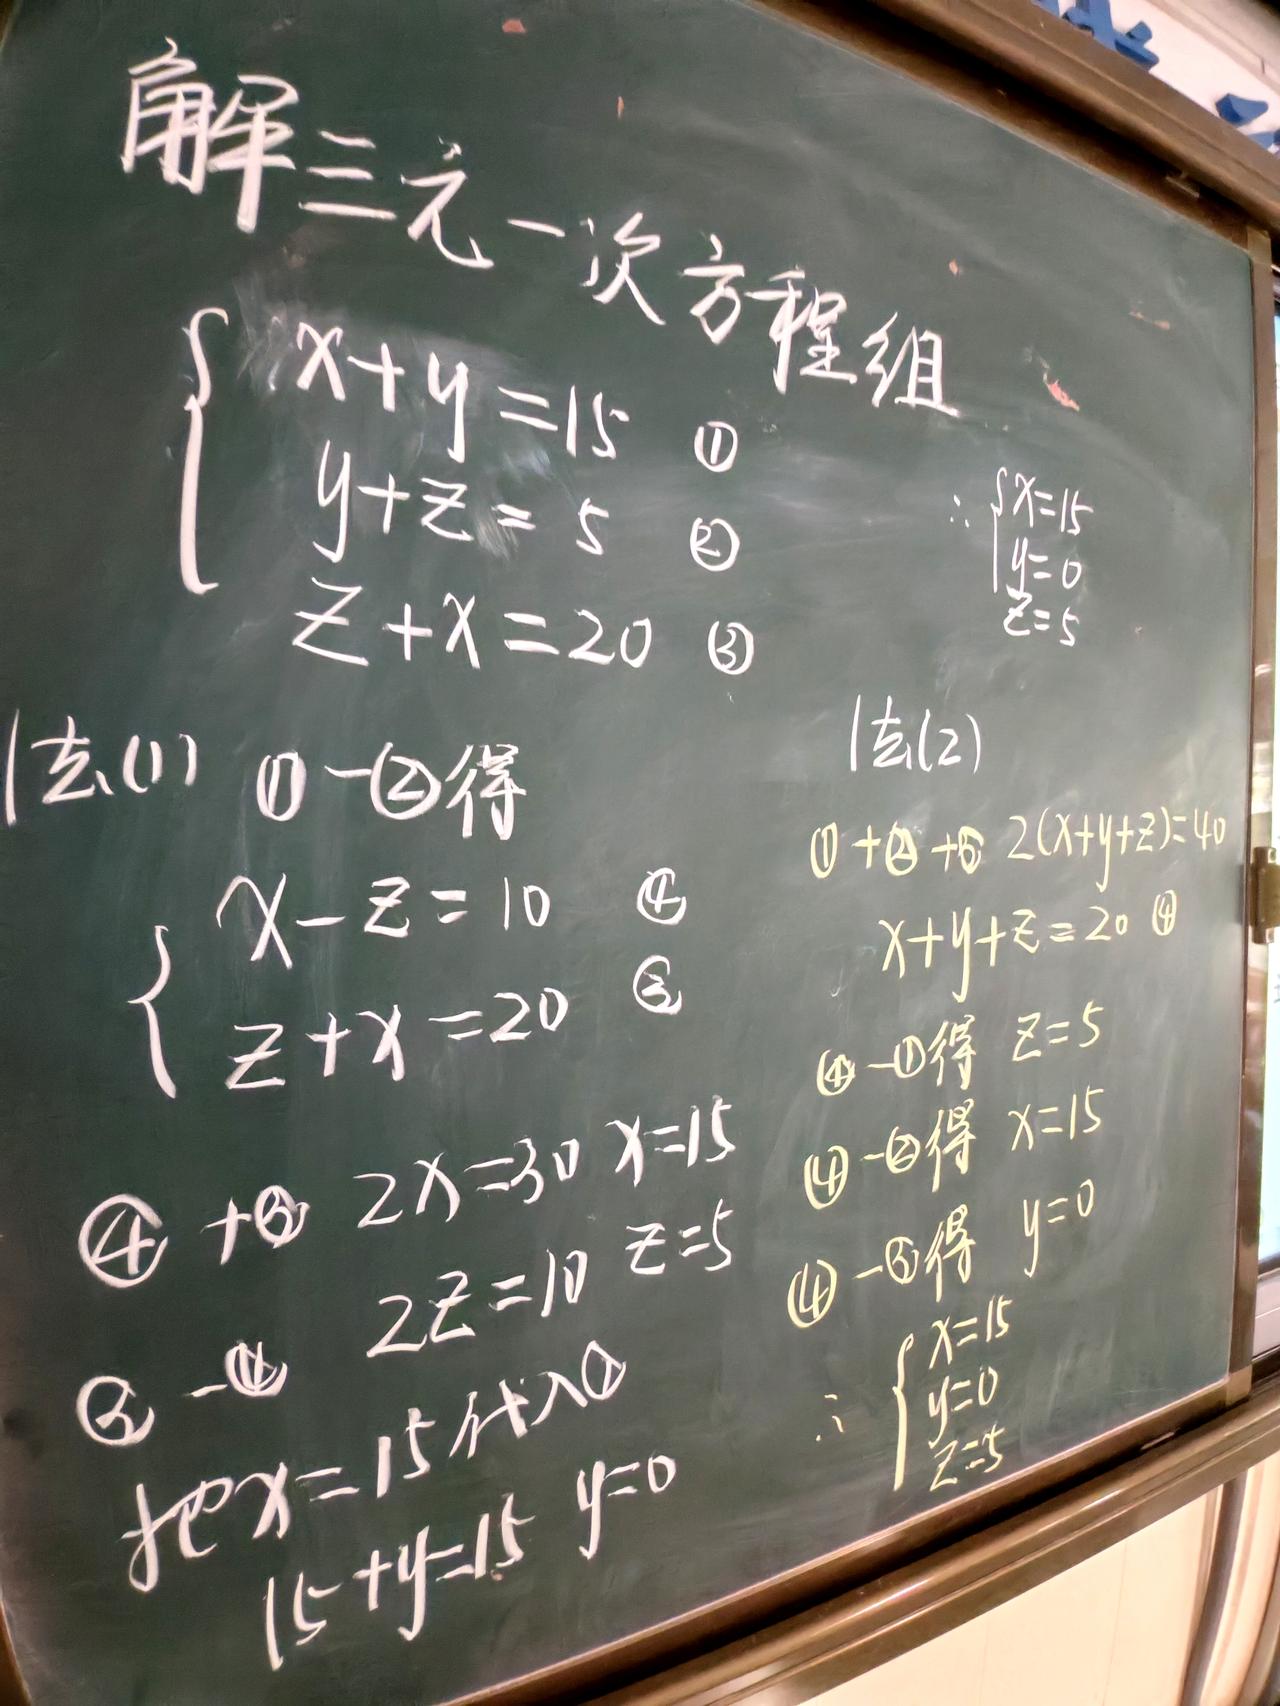 解三元一次方程组
x+y=15 ①
y+z=5 ②
z+x=20 ③
法(1) ①-②得
x-z=10 ④
z+x=20 ③
④+③ 2x=30 x=15
③-④ 2z=10 z=5
把x=15代入①
15+y=15 y=0
∴ x=15
y=0
z=5
法(2)
①+②+③ 2(x+y+z)=40
x+y+z=20 ④
④-①得 z=5
④-②得 x=15
④-③得 y=0
∴ x=15
y=0
z=5